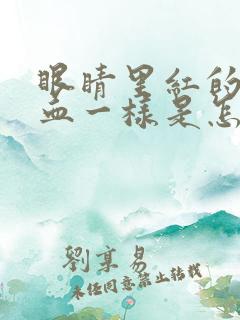 眼睛里紅的
血一樣是怎
劉享易
未经同意禁止转载